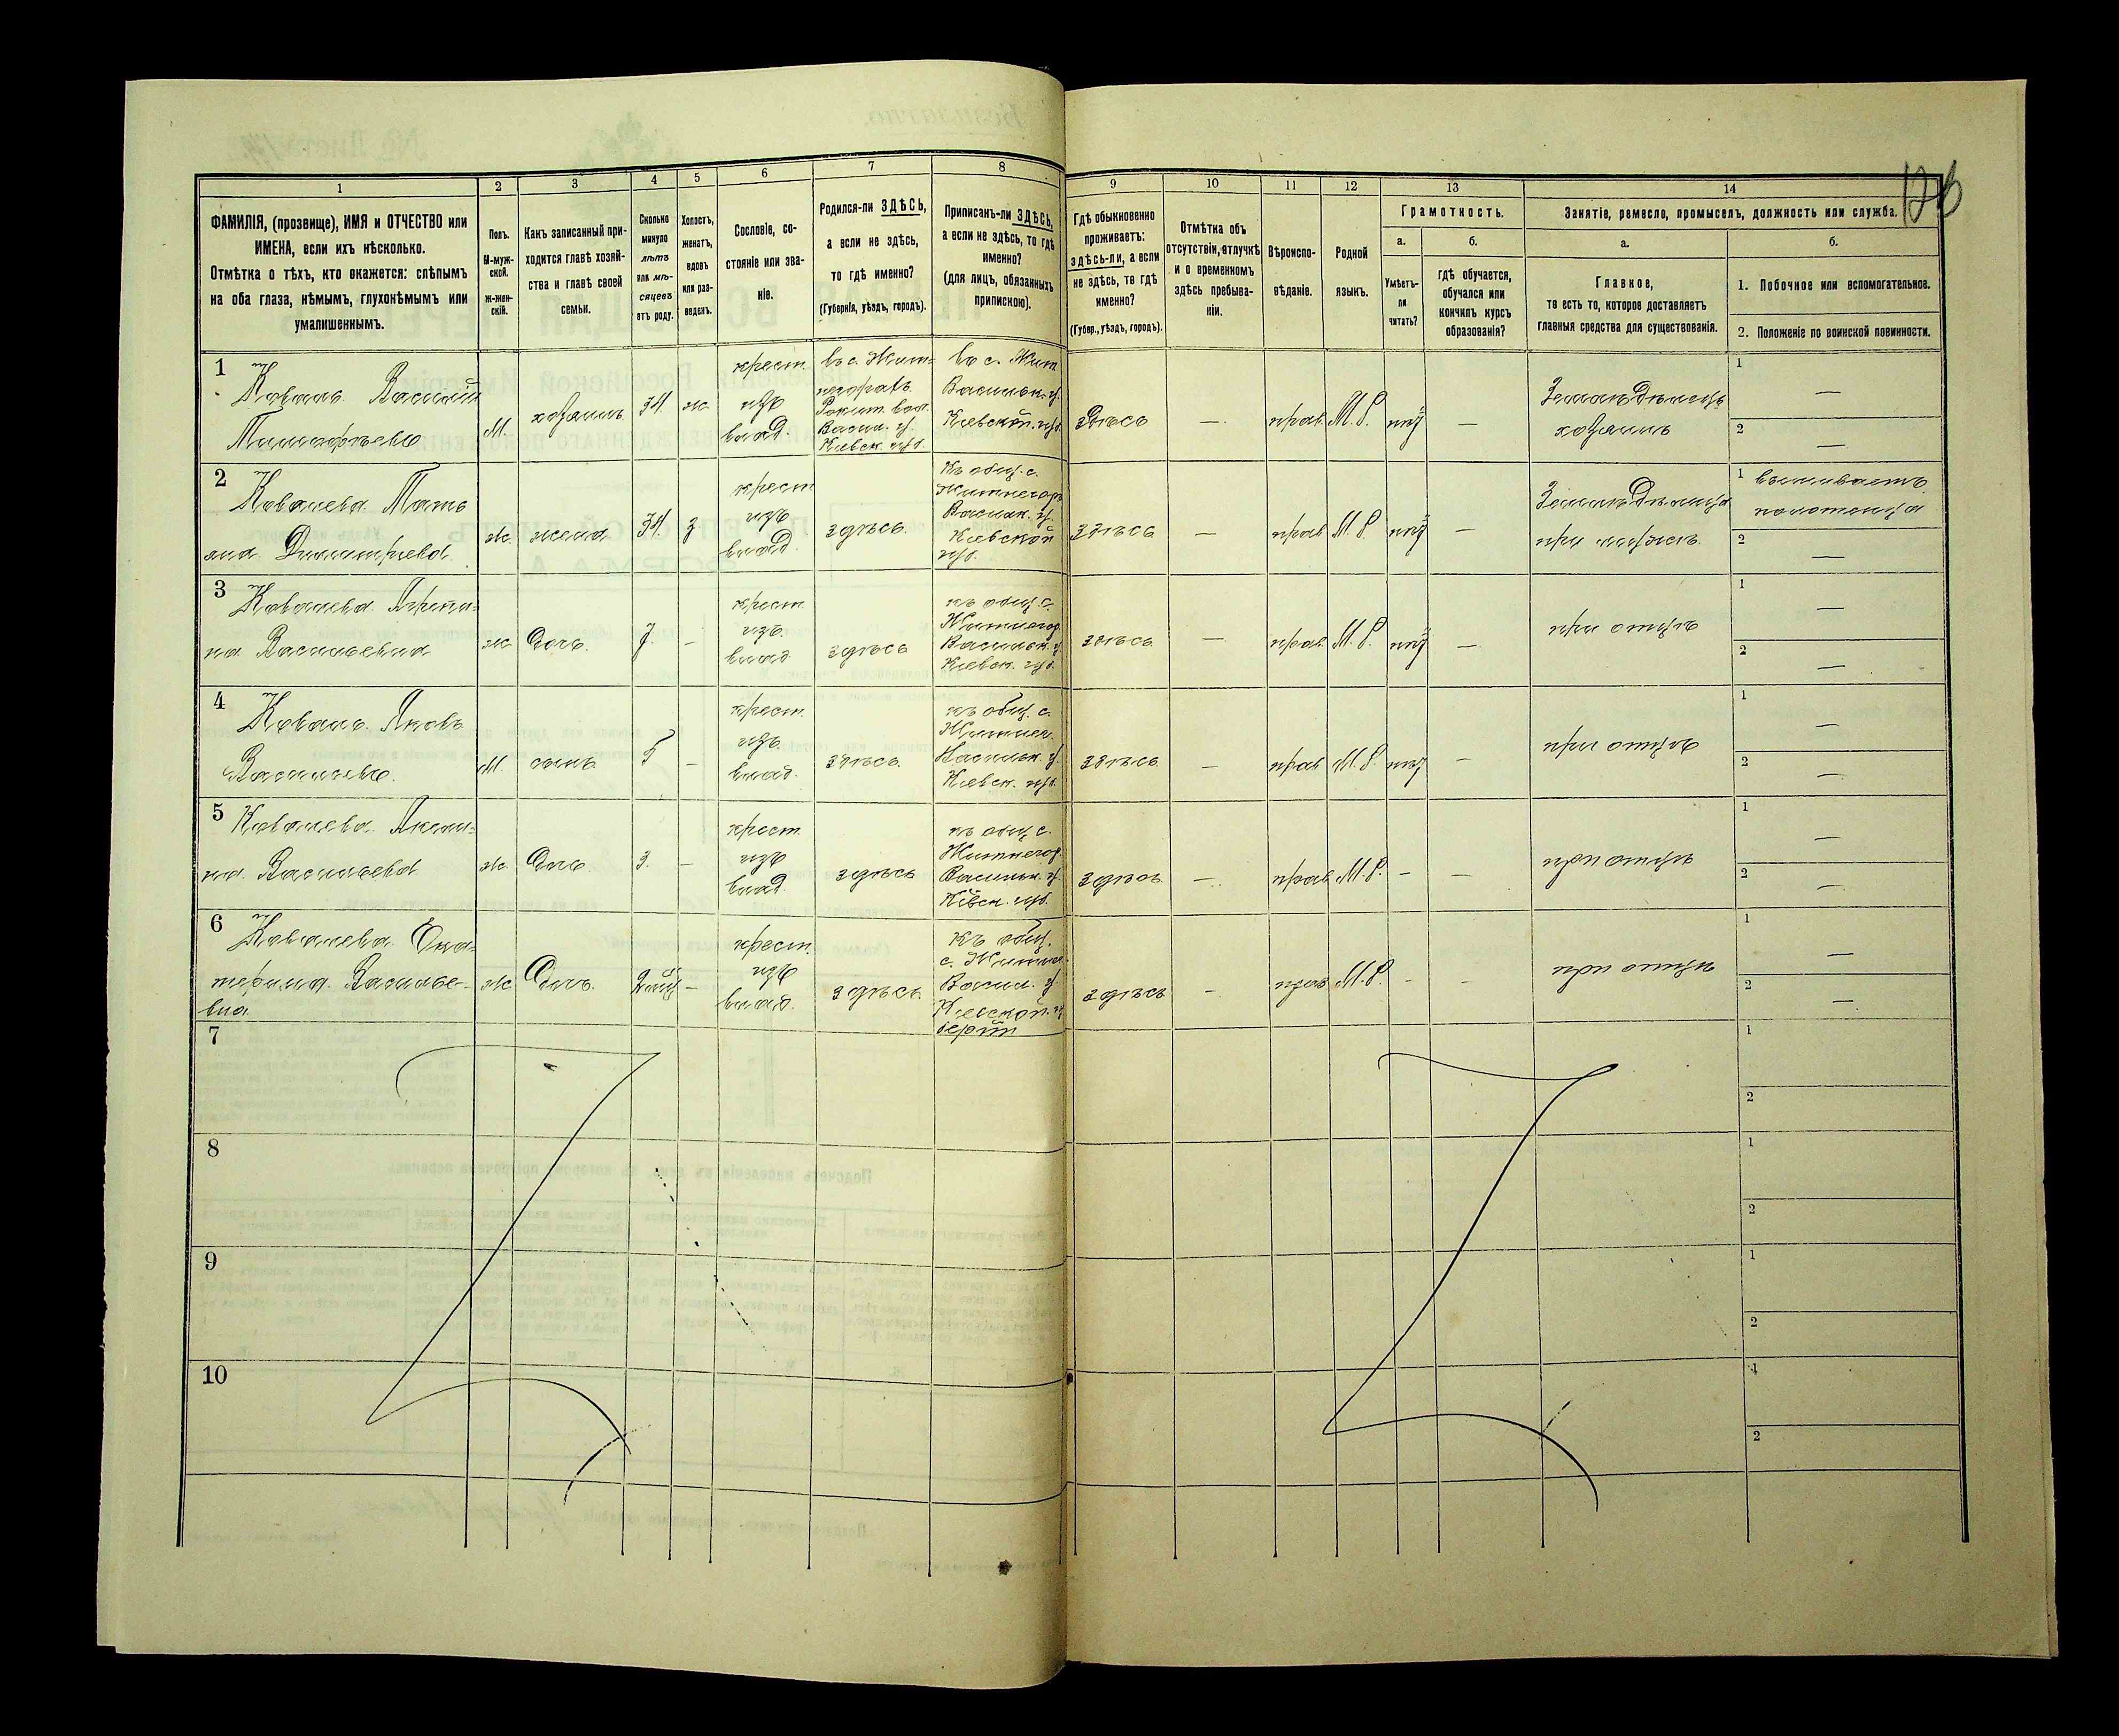 126
1
2
3
4
5
6
7
8
9
10
11
12
13
14
ФАМИЛІЯ, (прозвище), ИМЯ и ОТЧЕСТВО или
ИМЕНА, если ихъ нѣсколько.
Отмѣтка о тѣхъ, кто окажется: слѣпымъ
на оба глаза, нѣмымъ, глухонѣмымъ или
умалишеннымъ.
Полъ.
М-муж-
ской.
Ж-жен-
скій.
Какъ записанный при-
ходится главѣ хозяй-
ства и главѣ своей
семьи.
Сколько
минуло
лѣтъ
или мѣ-
сяцевъ
отъ роду.
Холостъ,
женатъ,
вдовъ
или раз-
веденъ.
Сословіе, со-
стояніе или зва-
ніе.
Родился-ли ЗДѢСЬ,
а если не здѣсь,
то гдѣ именно?
(Губернія, уѣздъ, городъ).
Приписанъ-ли ЗДѢСЬ,
а если не здѣсь, то гдѣ
именно?
(для лицъ, обязанныхъ
припискою).
Гдѣ обыкновенно
проживаетъ:
здѣсь-ли, а если
не здѣсь, то гдѣ
именно?
(Губер., уѣздъ, городъ).
Отмѣтка объ
отсутствіи, отлучкѣ
и о временномъ
здѣсь пребыва-
ніи.
Вѣроиспо-
вѣданіе.
Родной
языкъ.
Грамотность.
а.
б.
Умѣетъ-
ли
читать?
гдѣ обучается,
обучался или
кончилъ курсъ
образованія?
Занятіе, ремесло, промыселъ, должность или служба.
а.
б.
Главное,
то есть то, которое доставляетъ
главныя средства для существованія.
1. Побочное или вспомогательное.
2. Положеніе по воинской повинности.
1
Коваль Василій
Тимофѣевъ
М.
хозяинъ
34
ж.
крест.
изъ
влад.
въ с. Жит-
Васильк. у.
Кіевской. губ.
здѣсь
—
прав.
М. Р.
нѣт
—
Земледѣлецъ
хозяинъ
1 —
2 —
2
Ковалева Татья
яна Димитріева
ж
жена
34.
з
крест
изъ
влад.
здѣсь.
Къ общ. с.
Житнегор
Васильк. у.
Кіевской
губ.
здѣсь
—
прав
М. Р.
нѣт
—
Земледѣлица
при мужѣ.
1 вышиваетъ
полотенца
2 —
3
Ковалева Агрепи-
на Васильевна
ж
дочь.
7.
-
крест
изъ
влад
здѣсь
къ общ. с.
Житнегор.
Васильк. у.
Кіевск. губ.
здѣсь
—
прав.
М. Р.
нѣт
—
при отцѣ
1 —
2 —
4
Коваль Яковъ
Васильевъ.
М.
сынъ
5
-
крест.
изъ
влад.
здѣсь.
къ общ. с.
Житнег.
Васильк. у.
Кіевск. губ.
здѣсь
—
прав
М. Р.
нѣт
—
при отцѣ
1 —
2 —
5
Ковалева Акели-
на Васильева
ж
дочь.
3.
-
крест
изъ
влад.
здѣсь
къ общ. с.
Житнегор
Васильк. у.
Кіевск. губ.
здѣсь
—
прав
М. Р.
-
—
при отцѣ
1 —
2 —
6
Ковалева Ека-
терина Василье-
вна
ж
дочь.
-
крест.
изъ
влад.
здѣсь.
Къ общ.
с. Житне
Васил. у.
Кіевской. гу
берніи
здѣсь
-
прав
М. Р.
-
-
при отцѣ
1 —
2 —
7
1
2
8
1
2
9
1
2
10
1
2